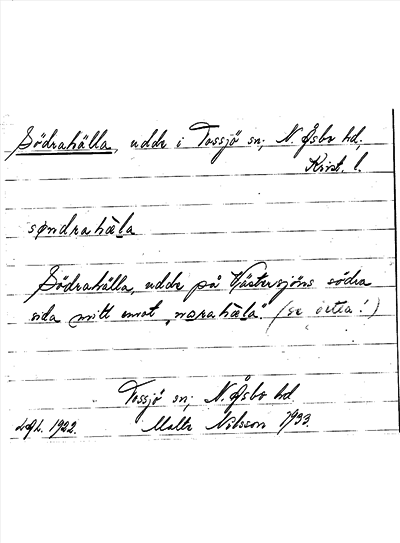 Södrahälla, udde i Tossjö sn; N. Åsbo hd;
Krist. l.
søndrahäla
Södrahälla, udde på Västersjöns södra
sida mitt emot „norahäla". (se detta!)
Tossjö sn; N. Åsbo hd
Uppt. 1922. Malte Nilsson 1933.